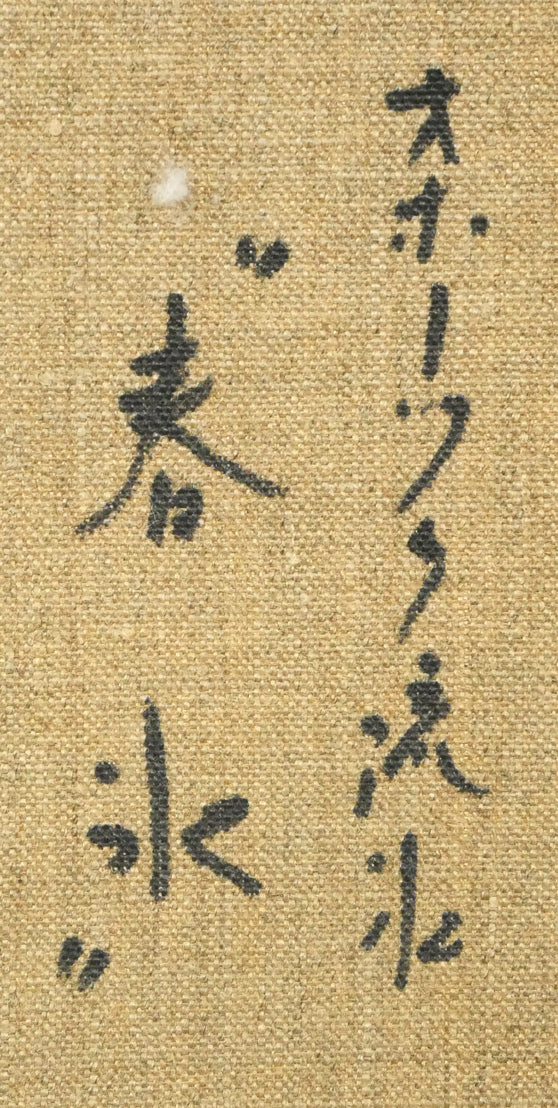 オホーツク流氷
"春氷"